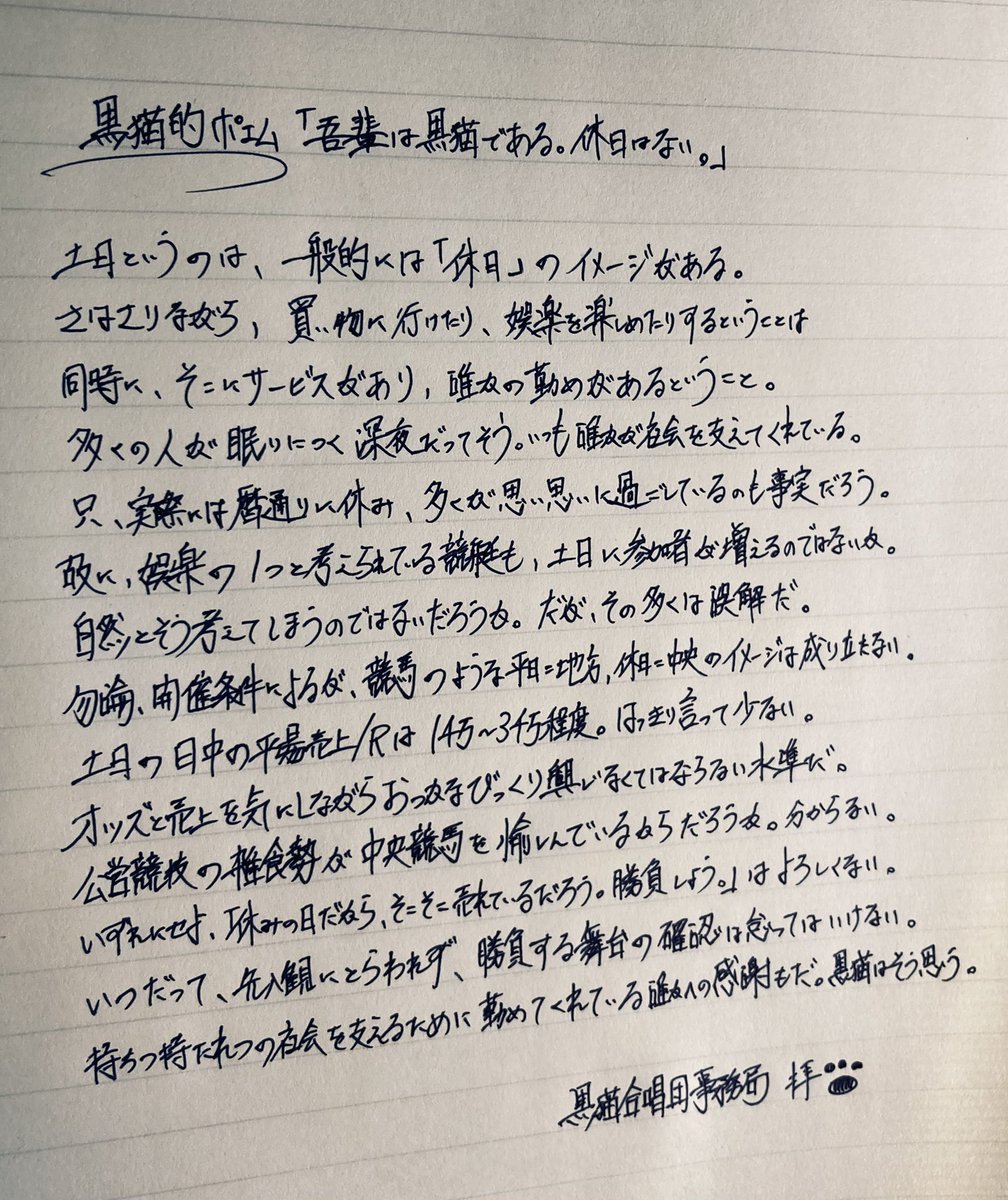 黒猫的ポエム「吾輩は黒猫である。休日はない。」
土日というのは、一般的には「休日」のイメージがある。
さはさりながら、買い物に行けたり、娯楽を楽しめたりするということは
同時に、そこにサービスがあり、誰かの勤めがあるということ。
多くの人が眠りにつく深夜だってそう。いつも誰かが社会を支えてくれている。
只、実際には暦通りに休み、多くが思い思いに過ごしているのも事実だろう。
故に、娯楽の1つと考えられている競艇も、土日に参加者が増えるのではないか。
自然とそう考えてしまうのではないだろうか。だが、その多くは誤解だ。
勿論、開催条件によるが、競馬のような平日=地方、休日=中央のイメージは成り立たない。
土日の日中の平場売上/Rは1千万~3千万程度。はっきり言って少ない。
オッズと売上を気にしながらおっかなびっくり興じなくてはならない水準だ。
公営競技の雑食勢が中央競馬を愉しんでいるからだろうか。分からない。
いずれにせよ、「休みの日だから、そこそこ売れているだろう。勝負しよう。」はよろしくない。
いつだって、先入観にとらわれず、勝負する舞台の確認は怠ってはいけない。
持ちつ持たれつの社会を支えるために勤めてくれている誰かへの感謝もだ。黒猫はそう思う。
黒猫合唱団事務局 拝